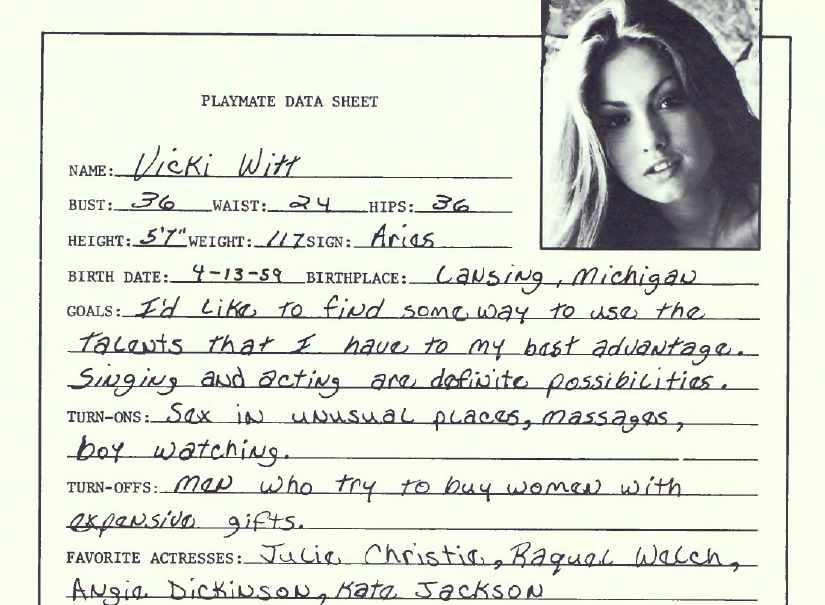 PLAYMATE DATA SHEET
NAME: Vicki Witt
BUST: 36 WAIST: 24 HIPS: 36
HEIGHT: 5'7" WEIGHT: 117 SIGN: Aries
BIRTH DATE: 4-13-59 BIRTHPLACE: Lansing, Michigan
GOALS: I'd like to find some way to use the
talents that I have to my best advantage.
Singing and acting are definite possibilities.
TURN-ONS: Sex in unusual places, massages,
boy watching.
TURN-OFFS: Men who try to buy women with
expensive gifts.
FAVORITE ACTRESSES: Julie Christie, Raquel Welch,
Angie Dickinson, Kate Jackson